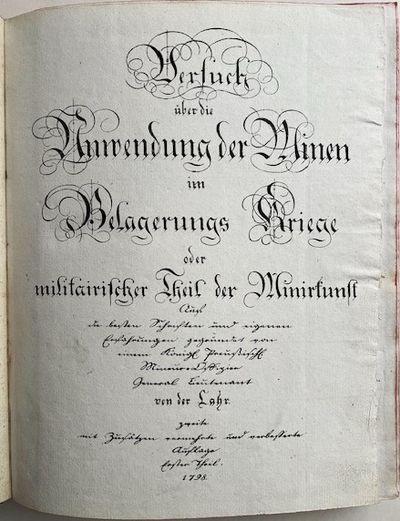 Versuch
über die
Anwendung der Minen
im
Belagerungs Kriege
oder
militairischer Theil der Minirkunst
Aus
den besten Schriften und eigenen
Erfahrungen gegründet von
einem Königl. Preußisch.
Mineur-Offizier
General Lieutenant
von der Lahr.
zweite
mit Zusätzen vermehrte und verbesserte
Auflage
Erster Theil.
1798.